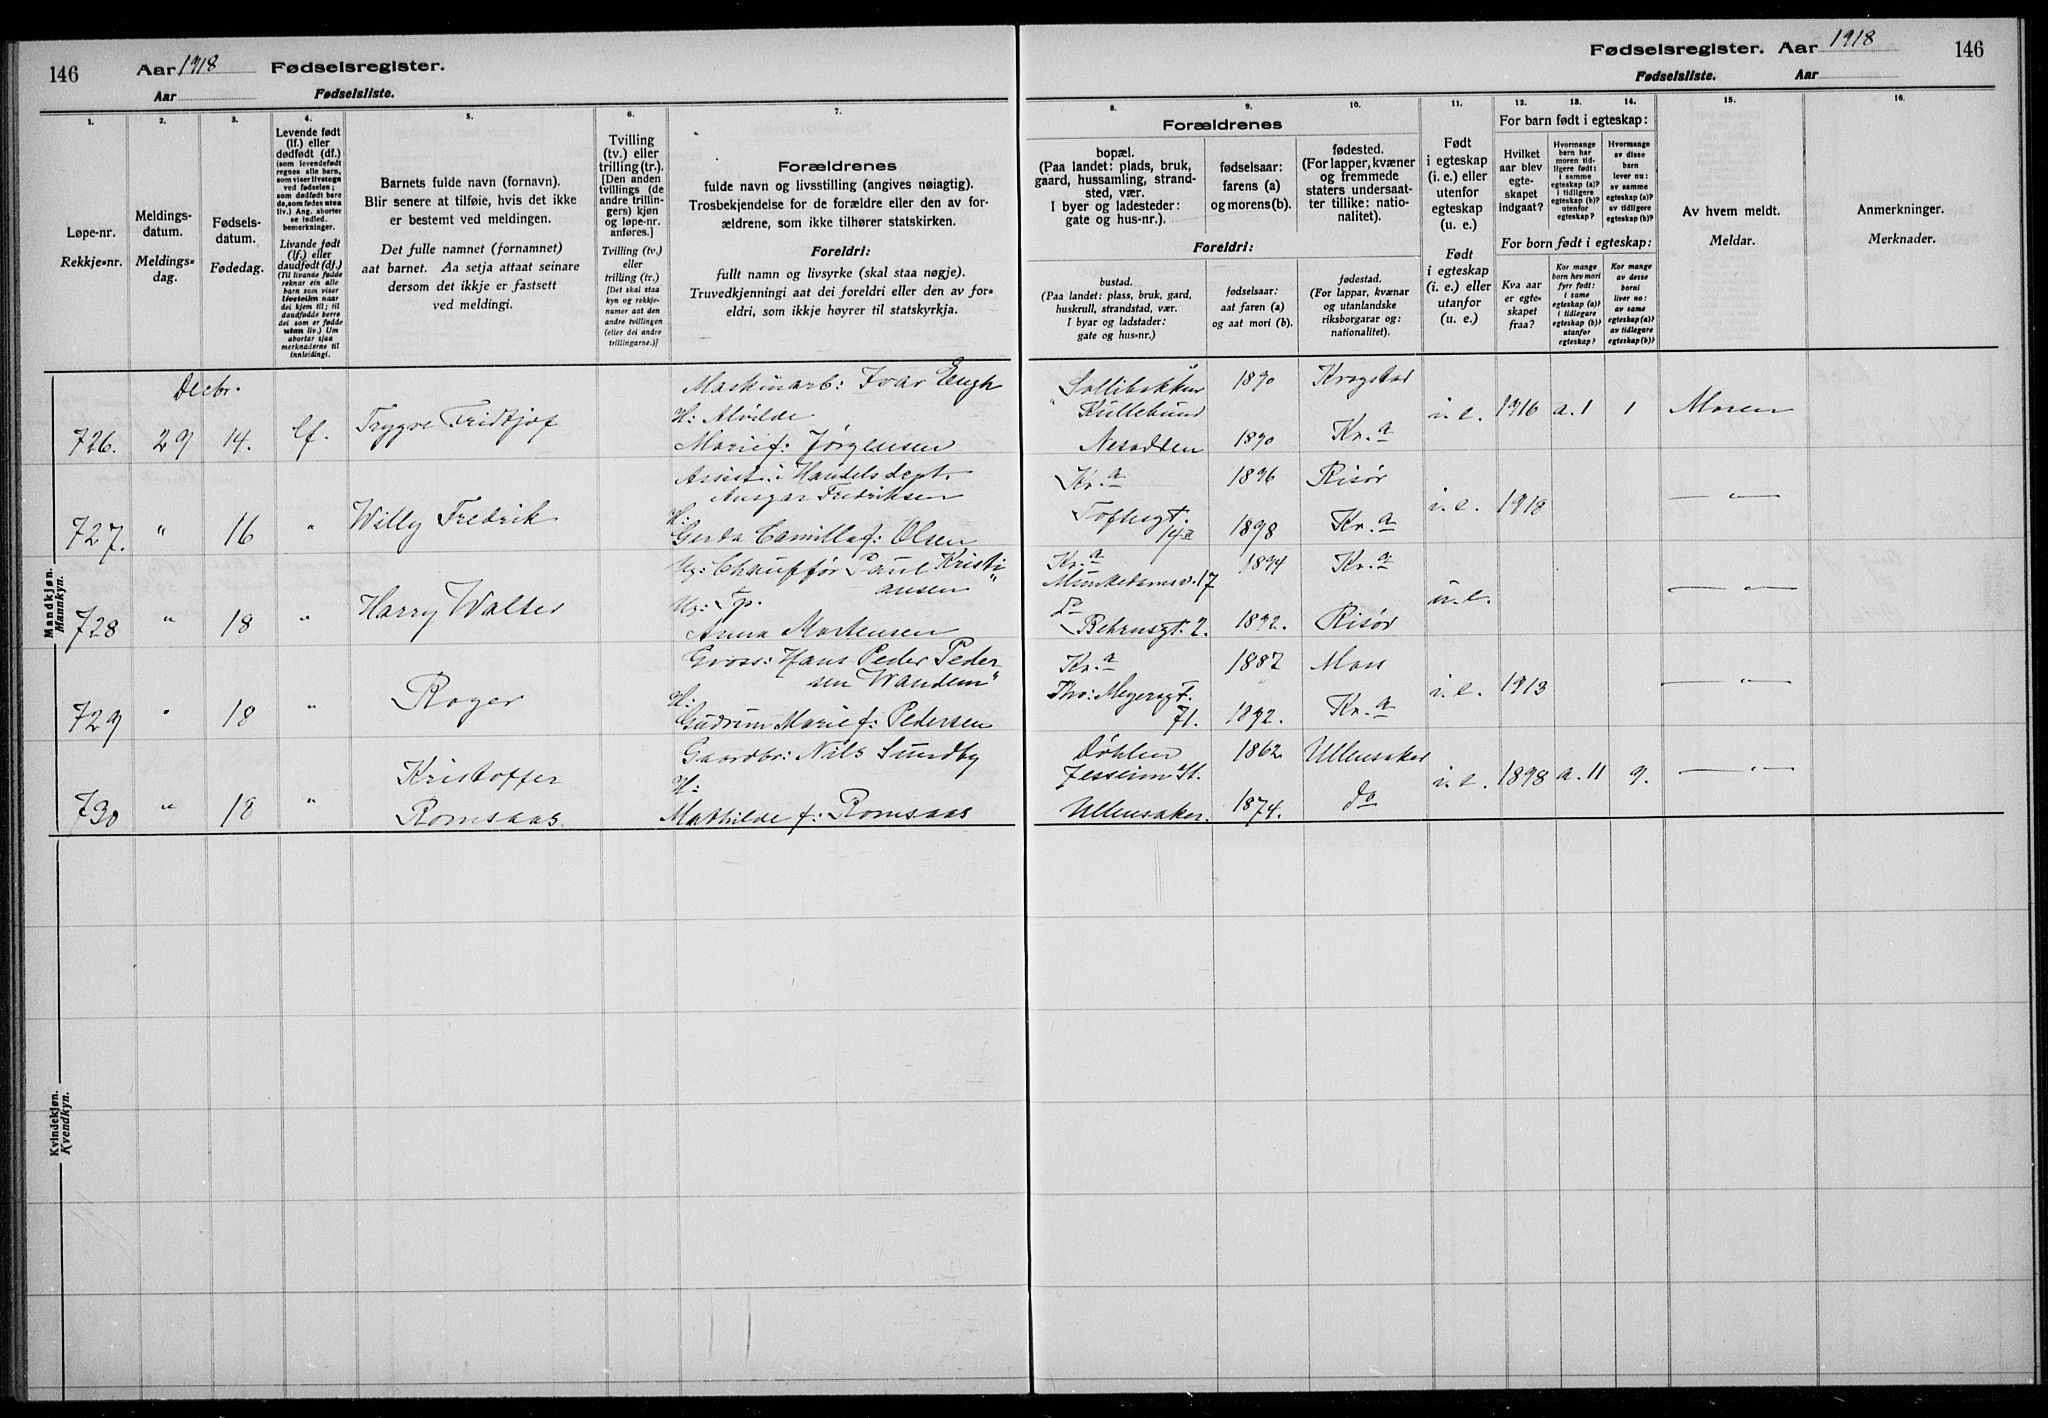 146 Aar 1918 Fødselsregister.
Aar Fødselsliste.
1. 2. 3. 4. 5. 6. 7.
Løpe-nr.
Rekkje-nr.
Meldings-
datum.
Meldings-
dag.
Fødsels-
datum.
Fødedag.
Levende født
(lf.) eller
dødfødt (df.)
(som levendefødt
regnes alle barn,
som viser livstegn
ved fødselen;
som dødfødt bare
de, som fødes uten
liv.) Ang. aborter
se indled.
bemerkninger.
Livande født
(lf.) eller
daudfødt (df.)
(Til livande fødde
reknar ein alle
barn som viser
livsteikn naar
dei kjem til; til
daudfødde berre
dei som er fødde
utan liv.) Um
abortar sjaa
merknaderne til
innleidingi.
Barnets fulde navn (fornavn).
Blir senere at tilføie, hvis det ikke
er bestemt ved meldingen.
Det fulle namnet (fornamnet)
aat barnet. Aa setja attaat seinare
dersom det ikkje er fastsett
ved meldingi.
Tvilling
(tv.) eller
trilling (tr.).
[Den anden
tvillings (de
andre trillin-
gers) kjøn
og løpe-nr.
anføres.]
Tvilling (tv.)
eller
trilling (tr.)
[Det skal staa
kyn og rekkje-
numer aat den
andre tvillingen
(eller dei andre
trillingarne.)]
Forældrenes
fulde navn og livsstilling (angives nøiagtig).
Trosbekjendelse for de forældre eller den av for-
ældrene, som ikke tilhører statskirken.
Foreldri:
fullt namn og livsyrke (skal staa nøgje).
Truvedkjenningi aat dei foreldri eller den av for-
eldri, som ikkje høyrer til statskyrkja.
Mandkjøn.
Mannkyn.
Kvindekjøn.
Kvendkyn.
Decbr.
Maskinarb: Ivar Engh
H: Alvilde
726. 29 14. lf. Trygve Fridtjof Marie f: Jørgensen
Assist. i Handelsdept.
Ansgar Fredriksen
H:
727. " 16 " Willy Fredrik Gerda Camilla f: Olsen
Ug: Chauffør Paul Kristi
ansen "
Ug: Tp.
728 " 18 " Harry Walter Anna Mortensen
Gross: Hans Peder Peder-
sen Wandem "
H:
729 " 18 " Roger Gudrun Marie f: Pedersen
Gaardbr: Nils Sundby
Kristoffer H:
730 " 18 " Romsaas Mathilde f: Romsaas
Fødselsregister. Aar 1918 146
Fødselsliste. Aar
8. 9. 10. 11. 12. 13. 14. 15. 16.
Forældrenes
bopæl.
(Paa landet: plads, bruk,
gaard, hussamling, strand-
sted, vær.
I byer og ladesteder:
gate og hus-nr.).
fødselsaar:
farens (a)
og morens (b).
fødested.
(For lapper, kvæner
og fremmede
staters undersaat-
ter tillike: natio-
nalitet).
Foreldri:
bustad.
(Paa landet: plass, bruk, gard,
huskrull, strandstad, vær.
I byar og ladstader:
gate og hus-nr.)
fødselsaar:
aat faren (a)
og aat mori (b).
fødestad.
(For lappar, kvænar
og utanlandske
riksborgarar og:
nationalitet).
Født
i egteskap
(i. e.) eller
utenfor
egteskap
(u. e.)
Født
i egteskap
(i. e.) eller
utanfor
(u. e.)
For barn født i egteskap:
Hvilket
aar blev
egte-
skapet
indgaat?
Hvormange
barn har
moren tid-
ligere født:
i samme
egteskap (a)?
i tidligere
egteskap (b)?
utenfor
egteskap?
Hvormange
av disse
barn
lever nu:
av samme
egteskap (a)?
av tidligere
egteskap (b)?
For born født i egteskap:
Kva aar
er egte-
skapet
fraa?
Kor mange
born hev mori
fyrr født:
i same
egteskap (a)?
i tidlegare
egteskap (b)?
utanfor
egteskap?
Kor mange
av desse
borni
liver no:
av same
egteskap (a)?
av tidlegare
egteskap (b)?
Av hvem meldt.
Meldar.
Anmerkninger.
Merknader.
Sollibakken 1890 Krogstad
i. e. 1916 a. 1 1 Moren
Nesodden 1890 Kr.a
Kr.a 1896 Risør
Toftesgt. i. e. 1918 — " —
14a 1898 Kr.a
Kr.a 1894 Kr.a
Munkedamsv. 17 u. e. — " —
Behrensgt. 2. 1892. Risør
Kr.a 1887 Moss
Thv: Meyersgt. i. e. 1913 — " —
71. 1892. Kr.a
Døhlen 1862. Ullensaker
Jessheim St. i. e. 1898 a. 11 9. — " —
Ullensaker. 1874. do